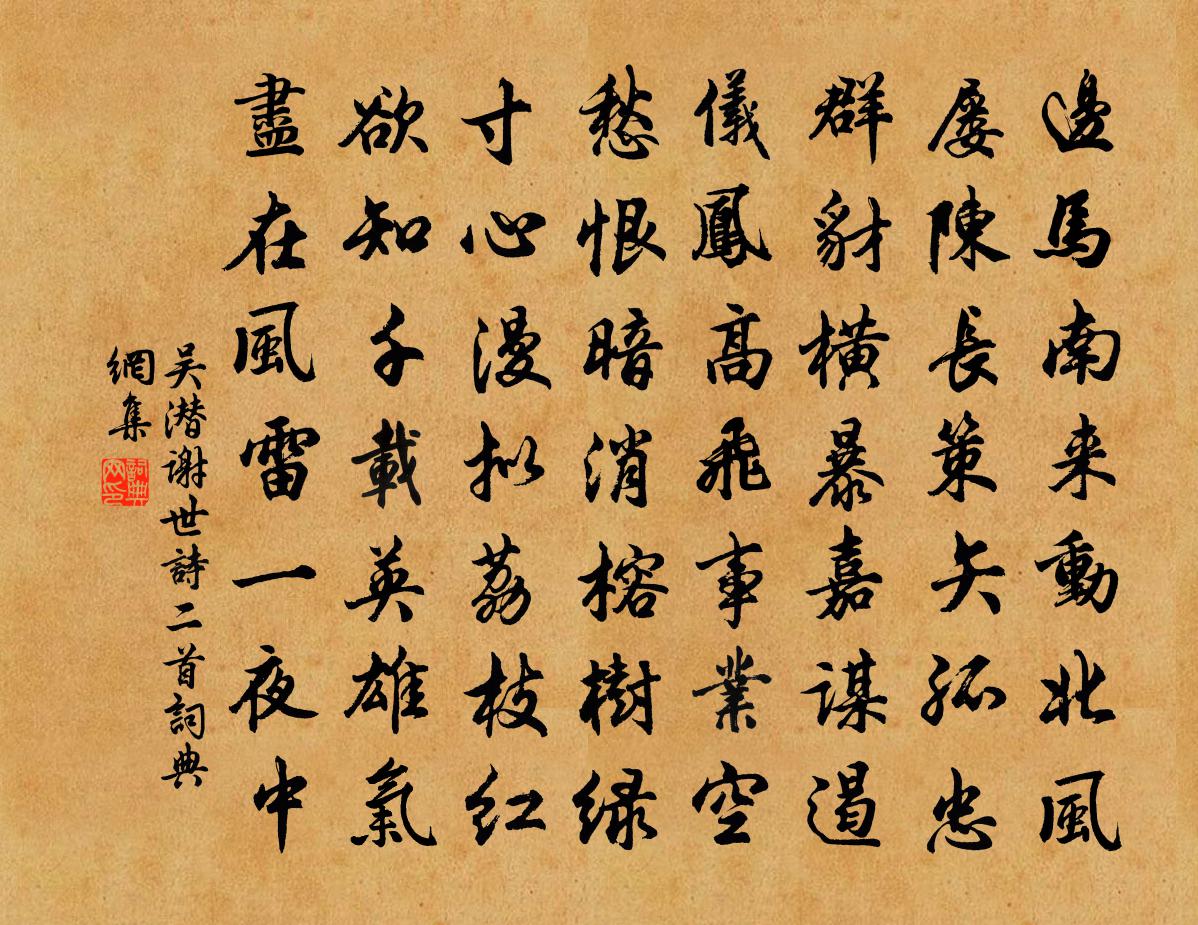 邊馬南来動北風
屡陳長策矢孤忠
群豺横暴嘉謀遏
儀鳳高飛事業空
愁恨暗消榕樹緑
寸心漫拟荔枝红
欲知千載英雄氣
盡在風雷一夜中
吴潜谢世詩二首詞典
網集
詞典